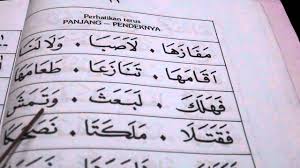 Perhatikan terus
PANJANG — PENDEKNYA
مَفَازَهَا · لَاَصَبَا · وَلَالَنَا
اَقَامَهَا · تَنَازَعَا · طَعَامَهَا
فَهَلَكَ · لَبَعَثَ · وَتَمَشَ
فَقَتَلَا · مَلَكَتَا ·